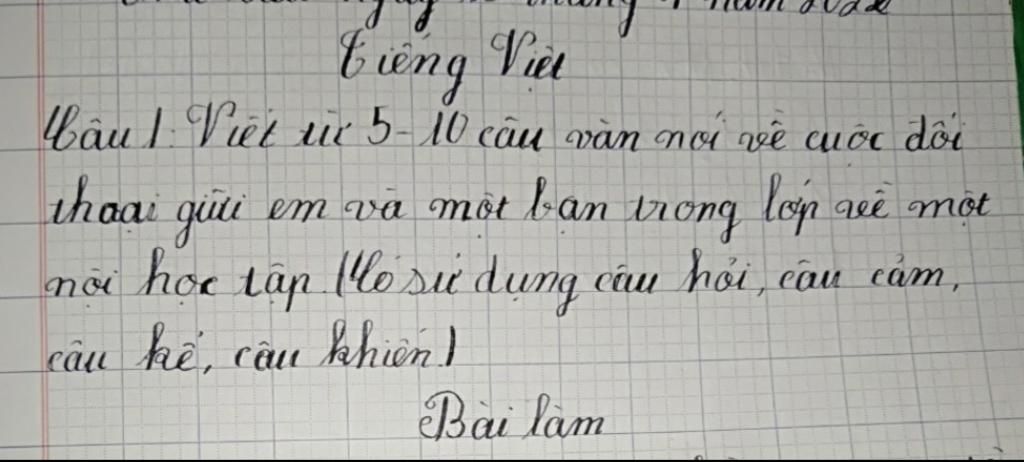 năm 2022
Tiếng Việt
Câu 1: Viết từ 5-10 câu văn nói về cuộc đối
thoại giữa em và một bạn trong lớp về một
nội học tập (Có sử dụng câu hỏi, câu cảm,
câu kể, câu khiến)
Bài làm